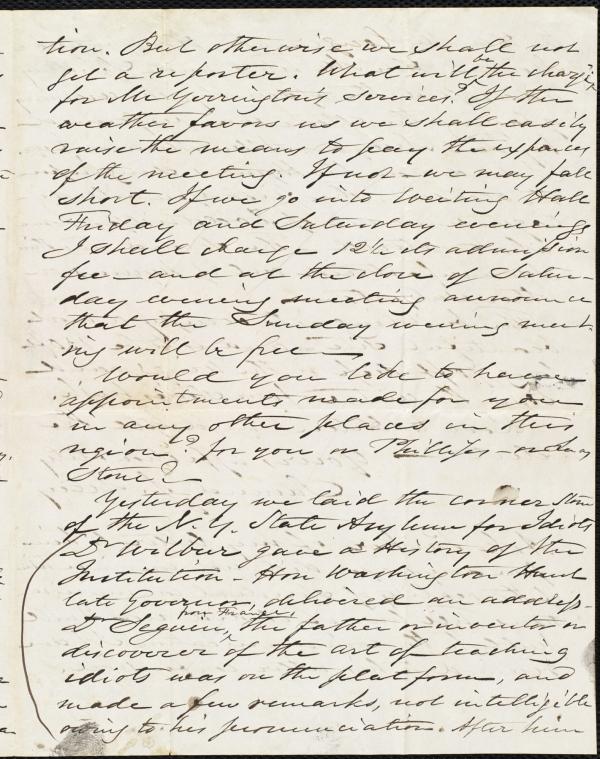 tion. But otherwise we shall not
get a reporter. What will be the charge
for Mr Yerrington's services? If the
weather favors us we shall easily
raise the means to pay the expences
of the meeting. If not - we may fall
short. If we go into Weiting Hall
Friday and Saturday evenings
I shall charge 12½ cts admission
fee - and at the close of Satur-
day evening meeting announce
that the Sunday evening meet-
ing will be free -
Would you like to have
appointments made for you
in any other places in this
region? for you or Phillips - or Lucy
Stone?
Yesterday we laid the corner stone
of the N.Y. State Asylum for Idiots
Dr Wilbur gave a History of the
Institution - Hon Washington Hunt
late Governor, delivered an address -
Dr Seguin, from France, the father or inventor or
discoverer of the art of teaching
idiots was on the platform, and
made a few remarks, not intelligible
owing to his pronunciation. After him